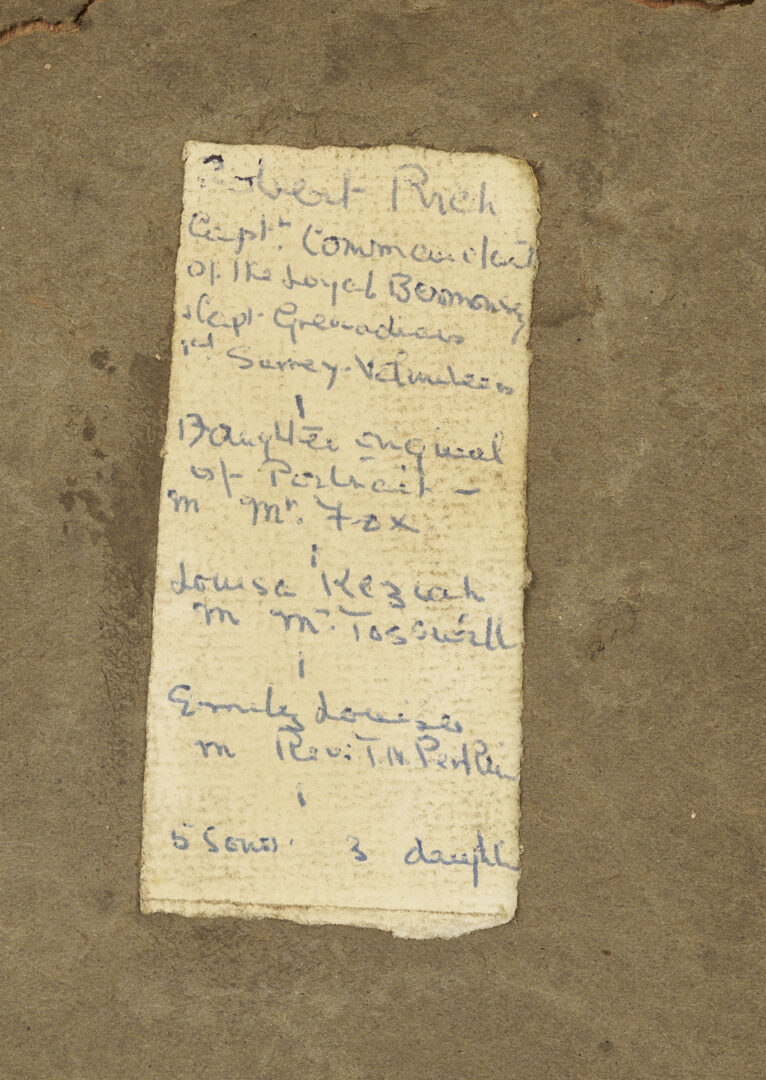 Robert Rich
Captn. Commandant
of the Loyal Bermondsey
Capt. Grenadiers
1st Surrey. Volunteers
Daughter original
of Portrait —
m Mr. Fox
Louisa Keziah
m Mr. Tosswill
Emily Louisa
m Rev. T.N. Perkin
5 Sons. 3 daught